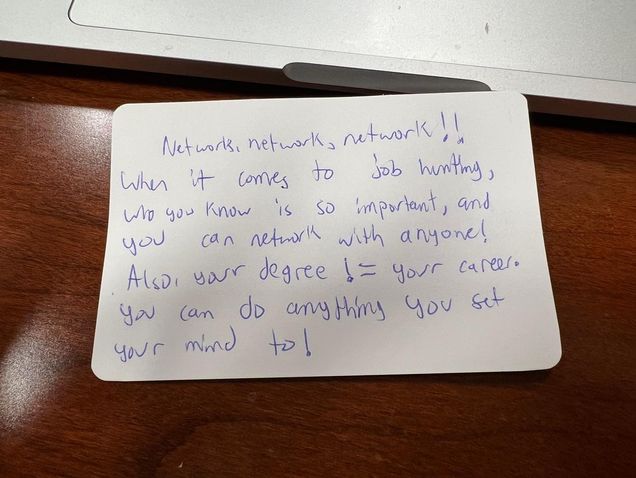 Network, network, network!!
When it comes to job hunting,
who you know is so important, and
you can network with anyone!
Also, your degree != your career.
You can do anything you set
your mind to!